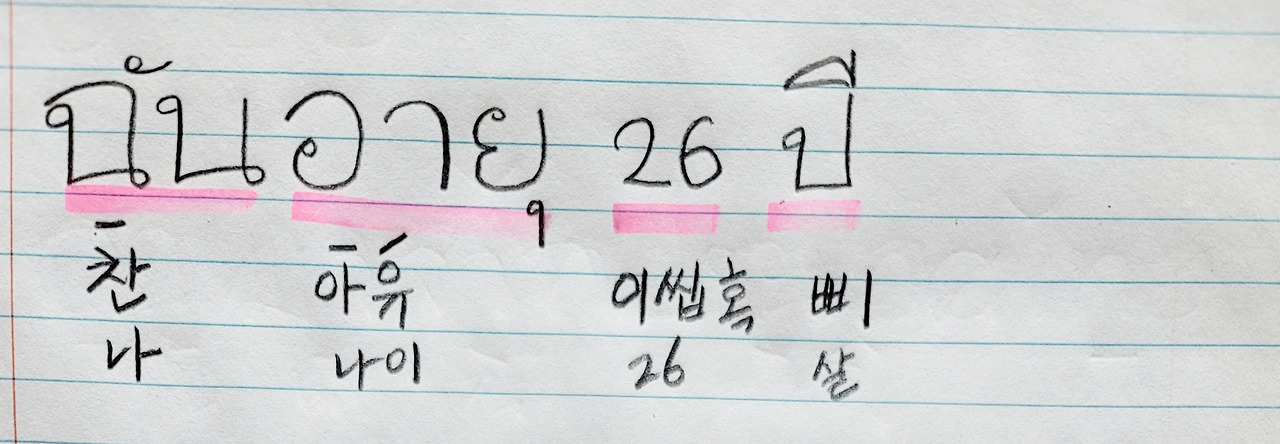 ฉันอายุ 26 ปี
찬 아유 이씹혹 삐
나 나이 26 살